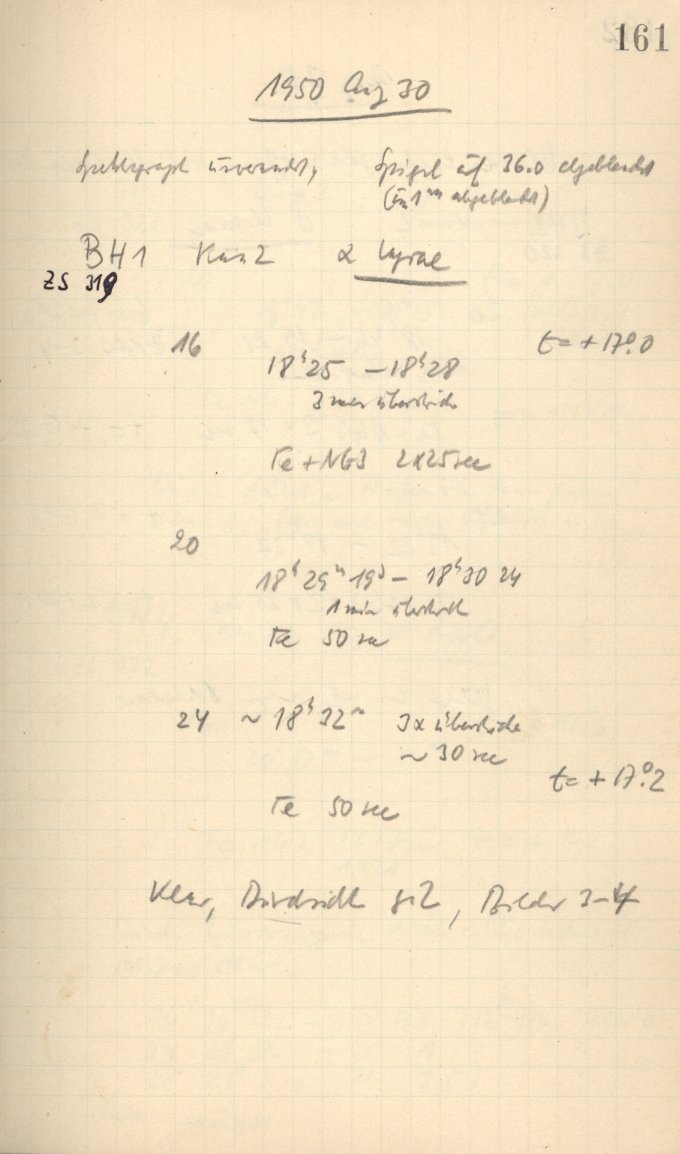 161
1950 Aug 30
Spektrograph unverändert, Spiegel auf 36.0 abgeblendet
(um 1ᵐ abgeblendet)
BH1 2 α Lyrae
ZS 319
16 t= +17°.0
18ʰ25 – 18ʰ28
3 mal überstrichen
Fe + NG3 2x25 sec
20
18ʰ29ᵐ19ˢ – 18ʰ30 24
1 mal überstrich
Fe 50 sec
24 ~ 18ʰ32ᵐ 3x überstriche
~ 30 sec
t= +17°.2
Fe 50 sec
Klar, Durchsicht 2, Bilder 3–4